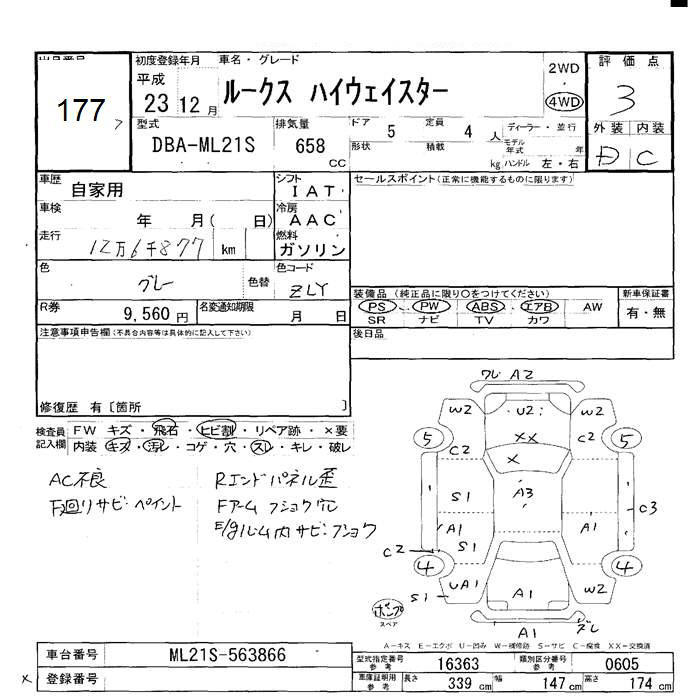 出品番号
177
初度登録年月
平成
23 12 月
車名・グレード
ルークス ハイウェイスター
2WD
4WD
評価点
3
型式
DBA-ML21S
排気量
658
CC
ドア 5 定員 4 人
形状 積載 kg
ディーラー・並行
モデル年式 年
ハンドル 左・右
外装 内装
D C
車歴
自家用
シフト
IAT
セールスポイント(正常に機能するものに限ります)
車検
年 月( 日)
冷房
AAC
走行
12万6千877 km
燃料
ガソリン
色
グレー
色替
色コード
ZLY
R券
9,560 円
名変通知期限
月 日
装備品(純正品に限り○をつけてください)
PS ・ PW ・ ABS ・ エアB ・ AW
SR ナビ TV カワ
新車保証書
有・無
注意事項申告欄(不具合内容等は具体的に記入して下さい)
後日品
修復歴 有〔箇所 〕
検査員記入欄
FW キズ・飛石・ヒビ割・リペア跡・×要
内装 キズ・汚レ・コゲ・穴・スレ・キレ・破レ
AC不良
下回リサビ・ペイント
Rエンドパネル歪
Fアーム フショク穴
E/gルーム内サビ・フショク
ワレ A2
W2
U2
W2
5
5
C2
C2
XX
X
S1
A3
C3
A1
S1
A1
C2
4
4
S1
UA1
A1
W2
A1
ズレ
ポンプ
スペア
A−キズ E−エクボ U−凹み W−補修跡 S−サビ C−腐食 XX−交換済
車台番号
ML21S-563866
型式指定番号
参考
16363
類別区分番号
参考
0605
× 登録番号
車庫証明用
参考
長さ 339 cm
幅 147 cm
高さ 174 cm